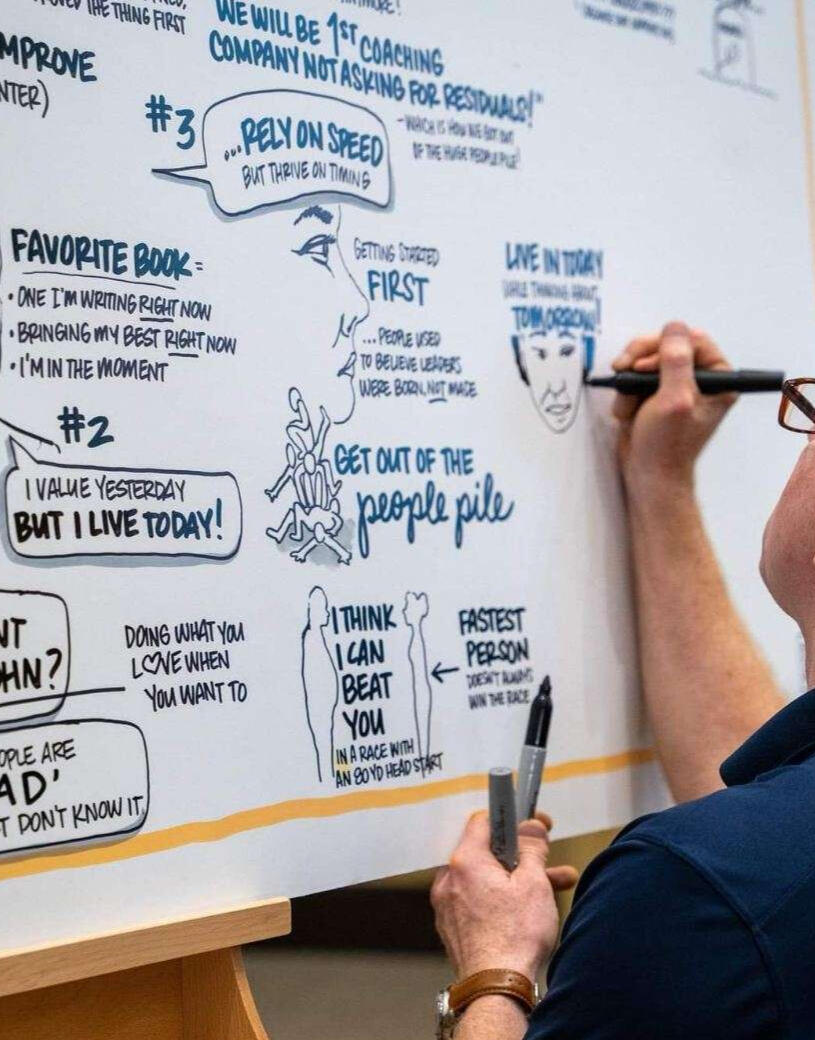 THE THING FIRST
WE WILL BE 1ST COACHING
COMPANY NOT ASKING FOR RESIDUALS!"
-WHICH IS HOW WE GOT OUT
OF THE HUGE PEOPLE PILE!
MPROVE
NTER)
#3
...RELY ON SPEED
BUT THRIVE ON TIMING
FAVORITE BOOK=
• ONE I'M WRITING RIGHT NOW
• BRINGING MY BEST RIGHT NOW
• I'M IN THE MOMENT
GETTING STARTED
FIRST
...PEOPLE USED
TO BELIEVE LEADERS
WERE BORN, NOT MADE
LIVE IN TODAY
WHILE THINKING ABOUT
TOMORROW!
#2
I VALUE YESTERDAY
BUT I LIVE TODAY!
GET OUT OF THE
people pile
NT
OHN?
DOING WHAT YOU
L♡VE WHEN
YOU WANT TO
I THINK
I CAN
BEAT
YOU
IN A RACE WITH
AN 80 YD HEAD START
FASTEST
PERSON
DOESN'T ALWAYS
WIN THE RACE
OPLE ARE
AD'
T DON'T KNOW IT